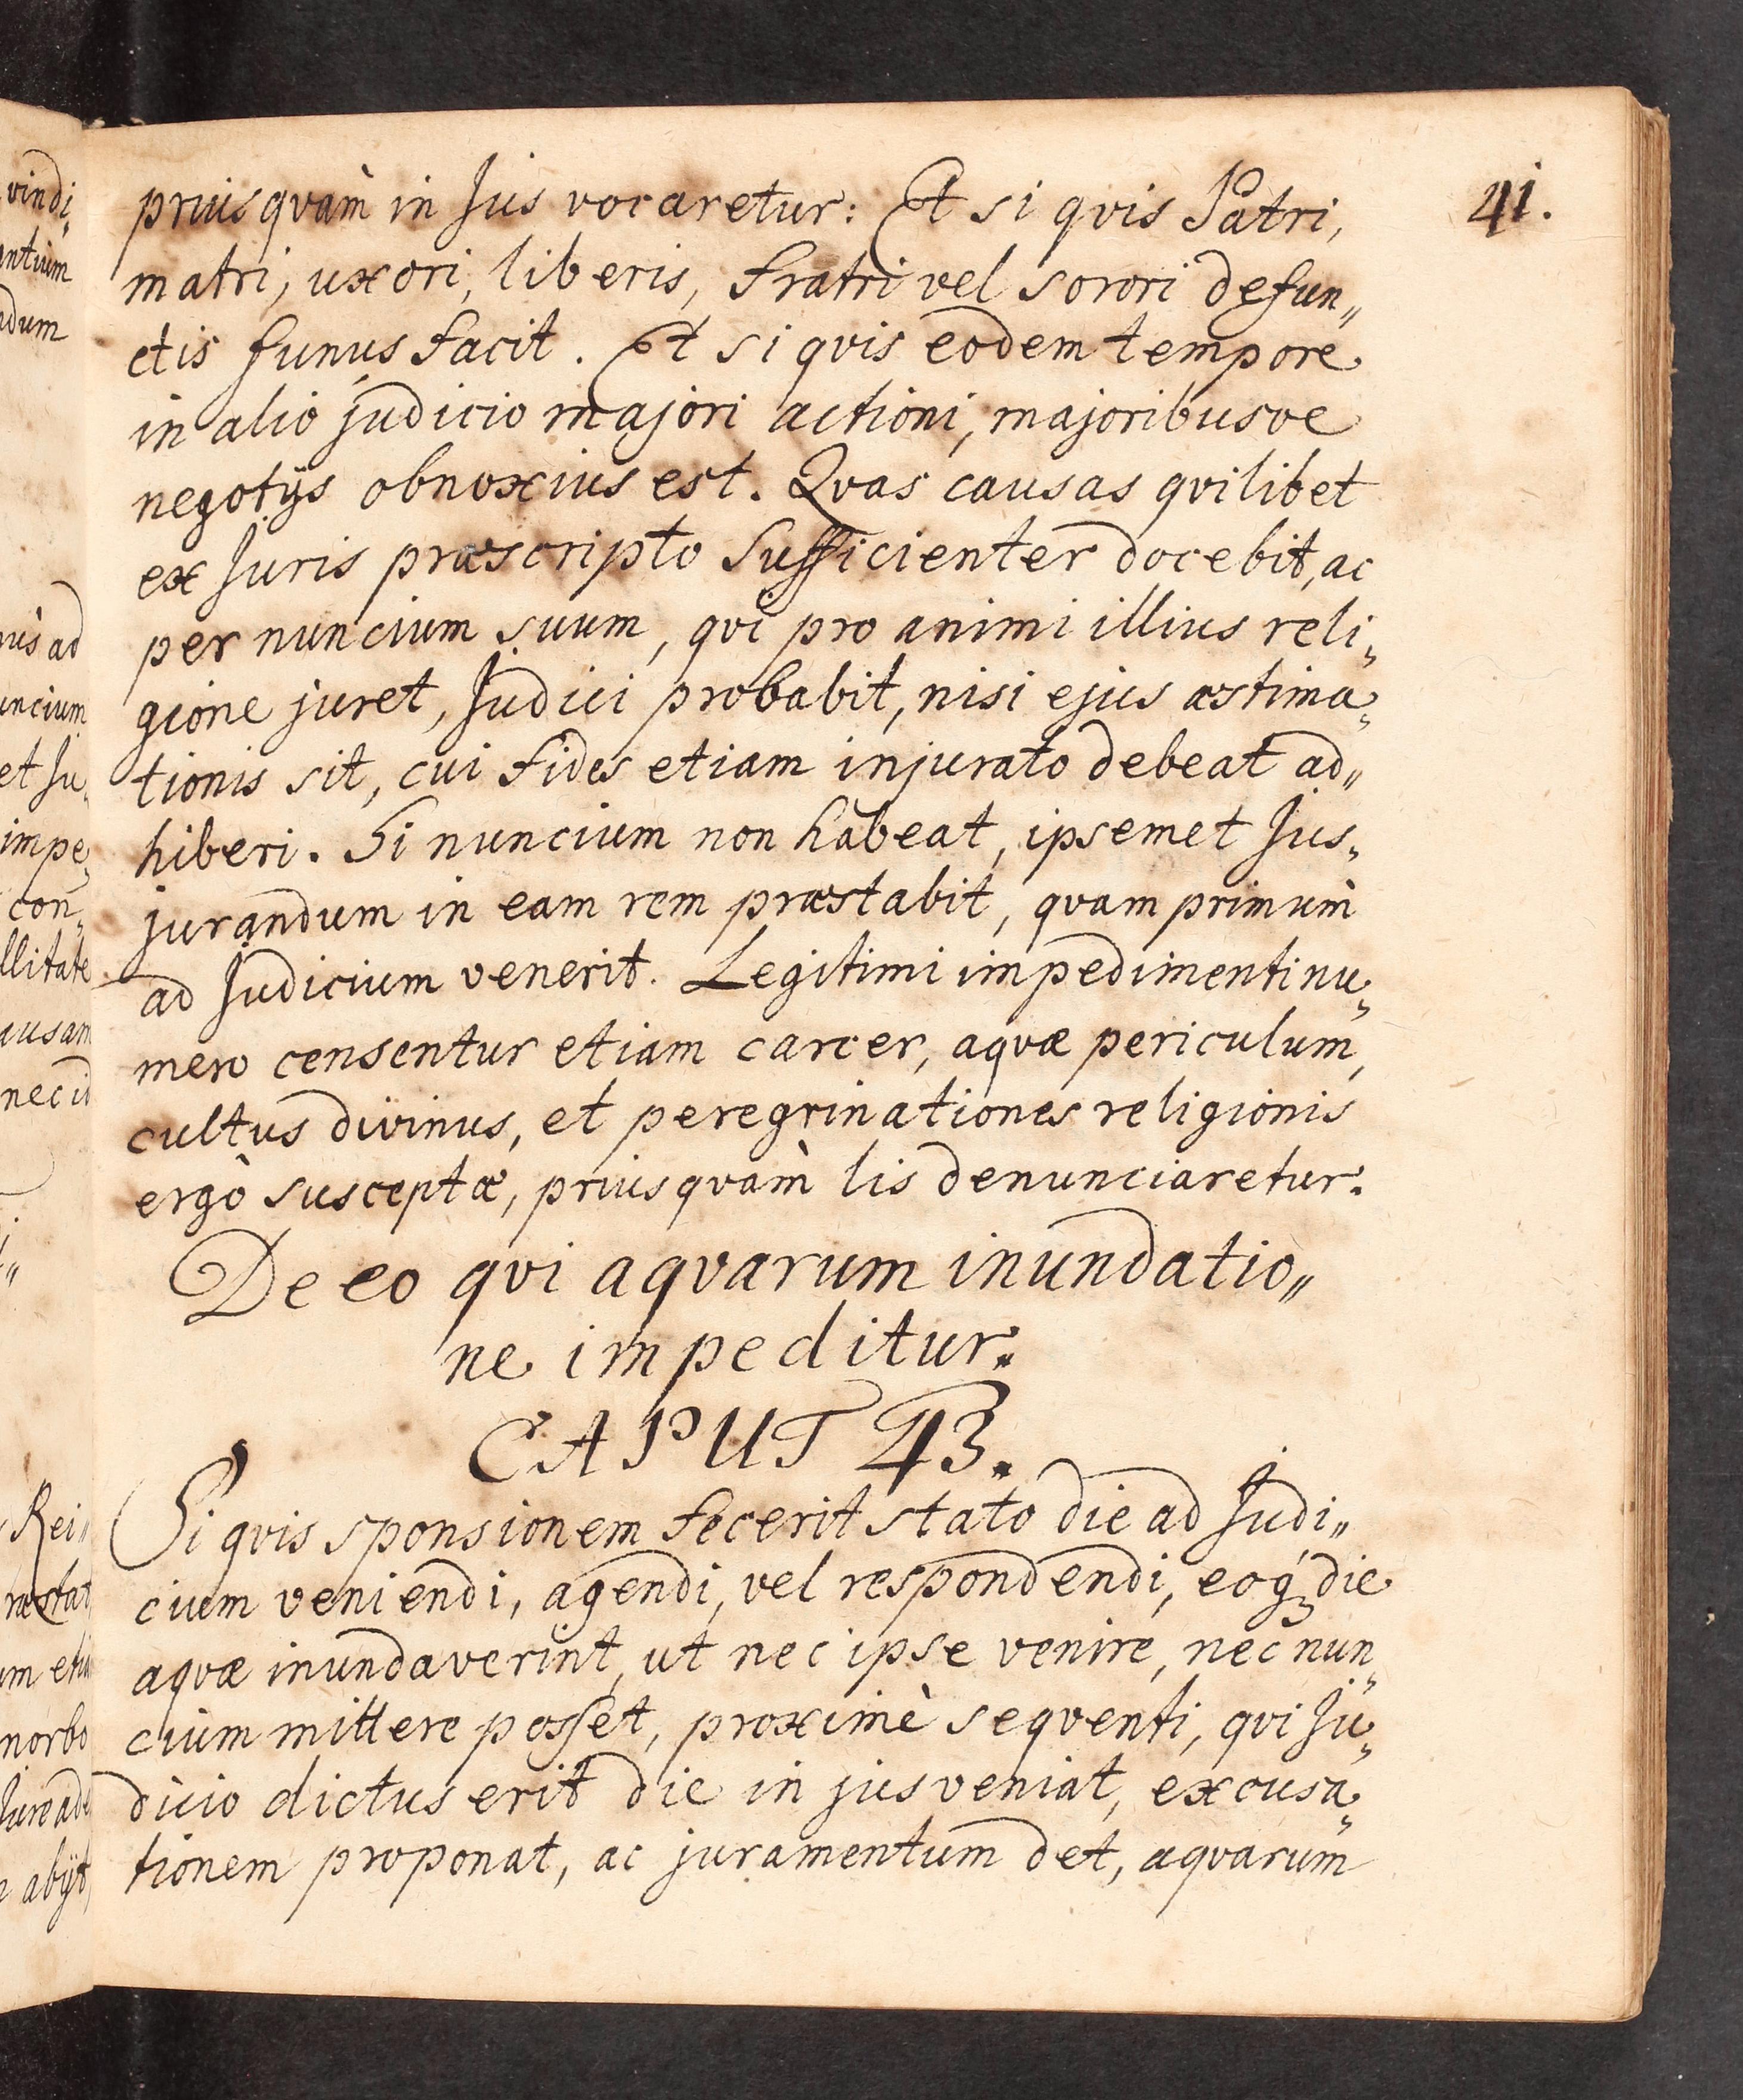 41.
priusqvàm in Jus vocaretur: Et si qvis Patri,
matri, uxori, liberis, fratri vel sorori defun„
ctis funus facit. Et si qvis eodem tempore
in alio judicio majori actioni, majoribusve
negotijs obnoxius est. Qvas causas qvilibet
ex Juris præscripto sufficienter docebit, ac
per nuncium suum, qvi pro animi illius reli„
gione juret, Judici probabit, nisi ejus æstima„
tionis sit, cui fides etiam injurato debeat ad„
hiberi. Si nuncium non habeat, ipsemet Jus„
jurandum in eam rem præstabit, qvam primùm
ad Judicium venerit. Legitimi impedimenti nu„
mero censentur etiam carcer, aqvæ periculum,
cultus divinus, et peregrinationes religionis
ergò susceptæ, priusqvàm lis denunciaretur.
De eo qvi aqvarum inundatio„
ne impeditur.
CAPUT 43.
Si qvis sponsionem fecerit stato die ad Judi„
cium veniendi, agendi, vel respondendi, eoq́ꝫ die
aqvæ inundaverint, ut nec ipse venire, nec nun„
cium mittere posset, proximè seqventi, qvi Ju„
dicio dictus erit die in jus veniat, excusa„
tionem proponat, ac juramentum det, aqvarum
vindi„
impe„
con„
nec id
Rei„
abijt,